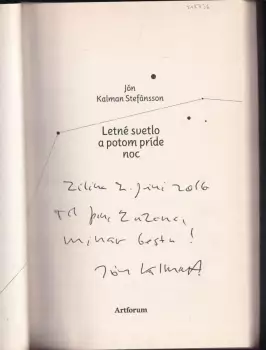 Jón
Kalman Stefánsson
Letné svetlo
a potom príde
noc
Žilina 2. júní 2016
Til Zuzana,
mínar bestu!
Jón Kalman
Artforum